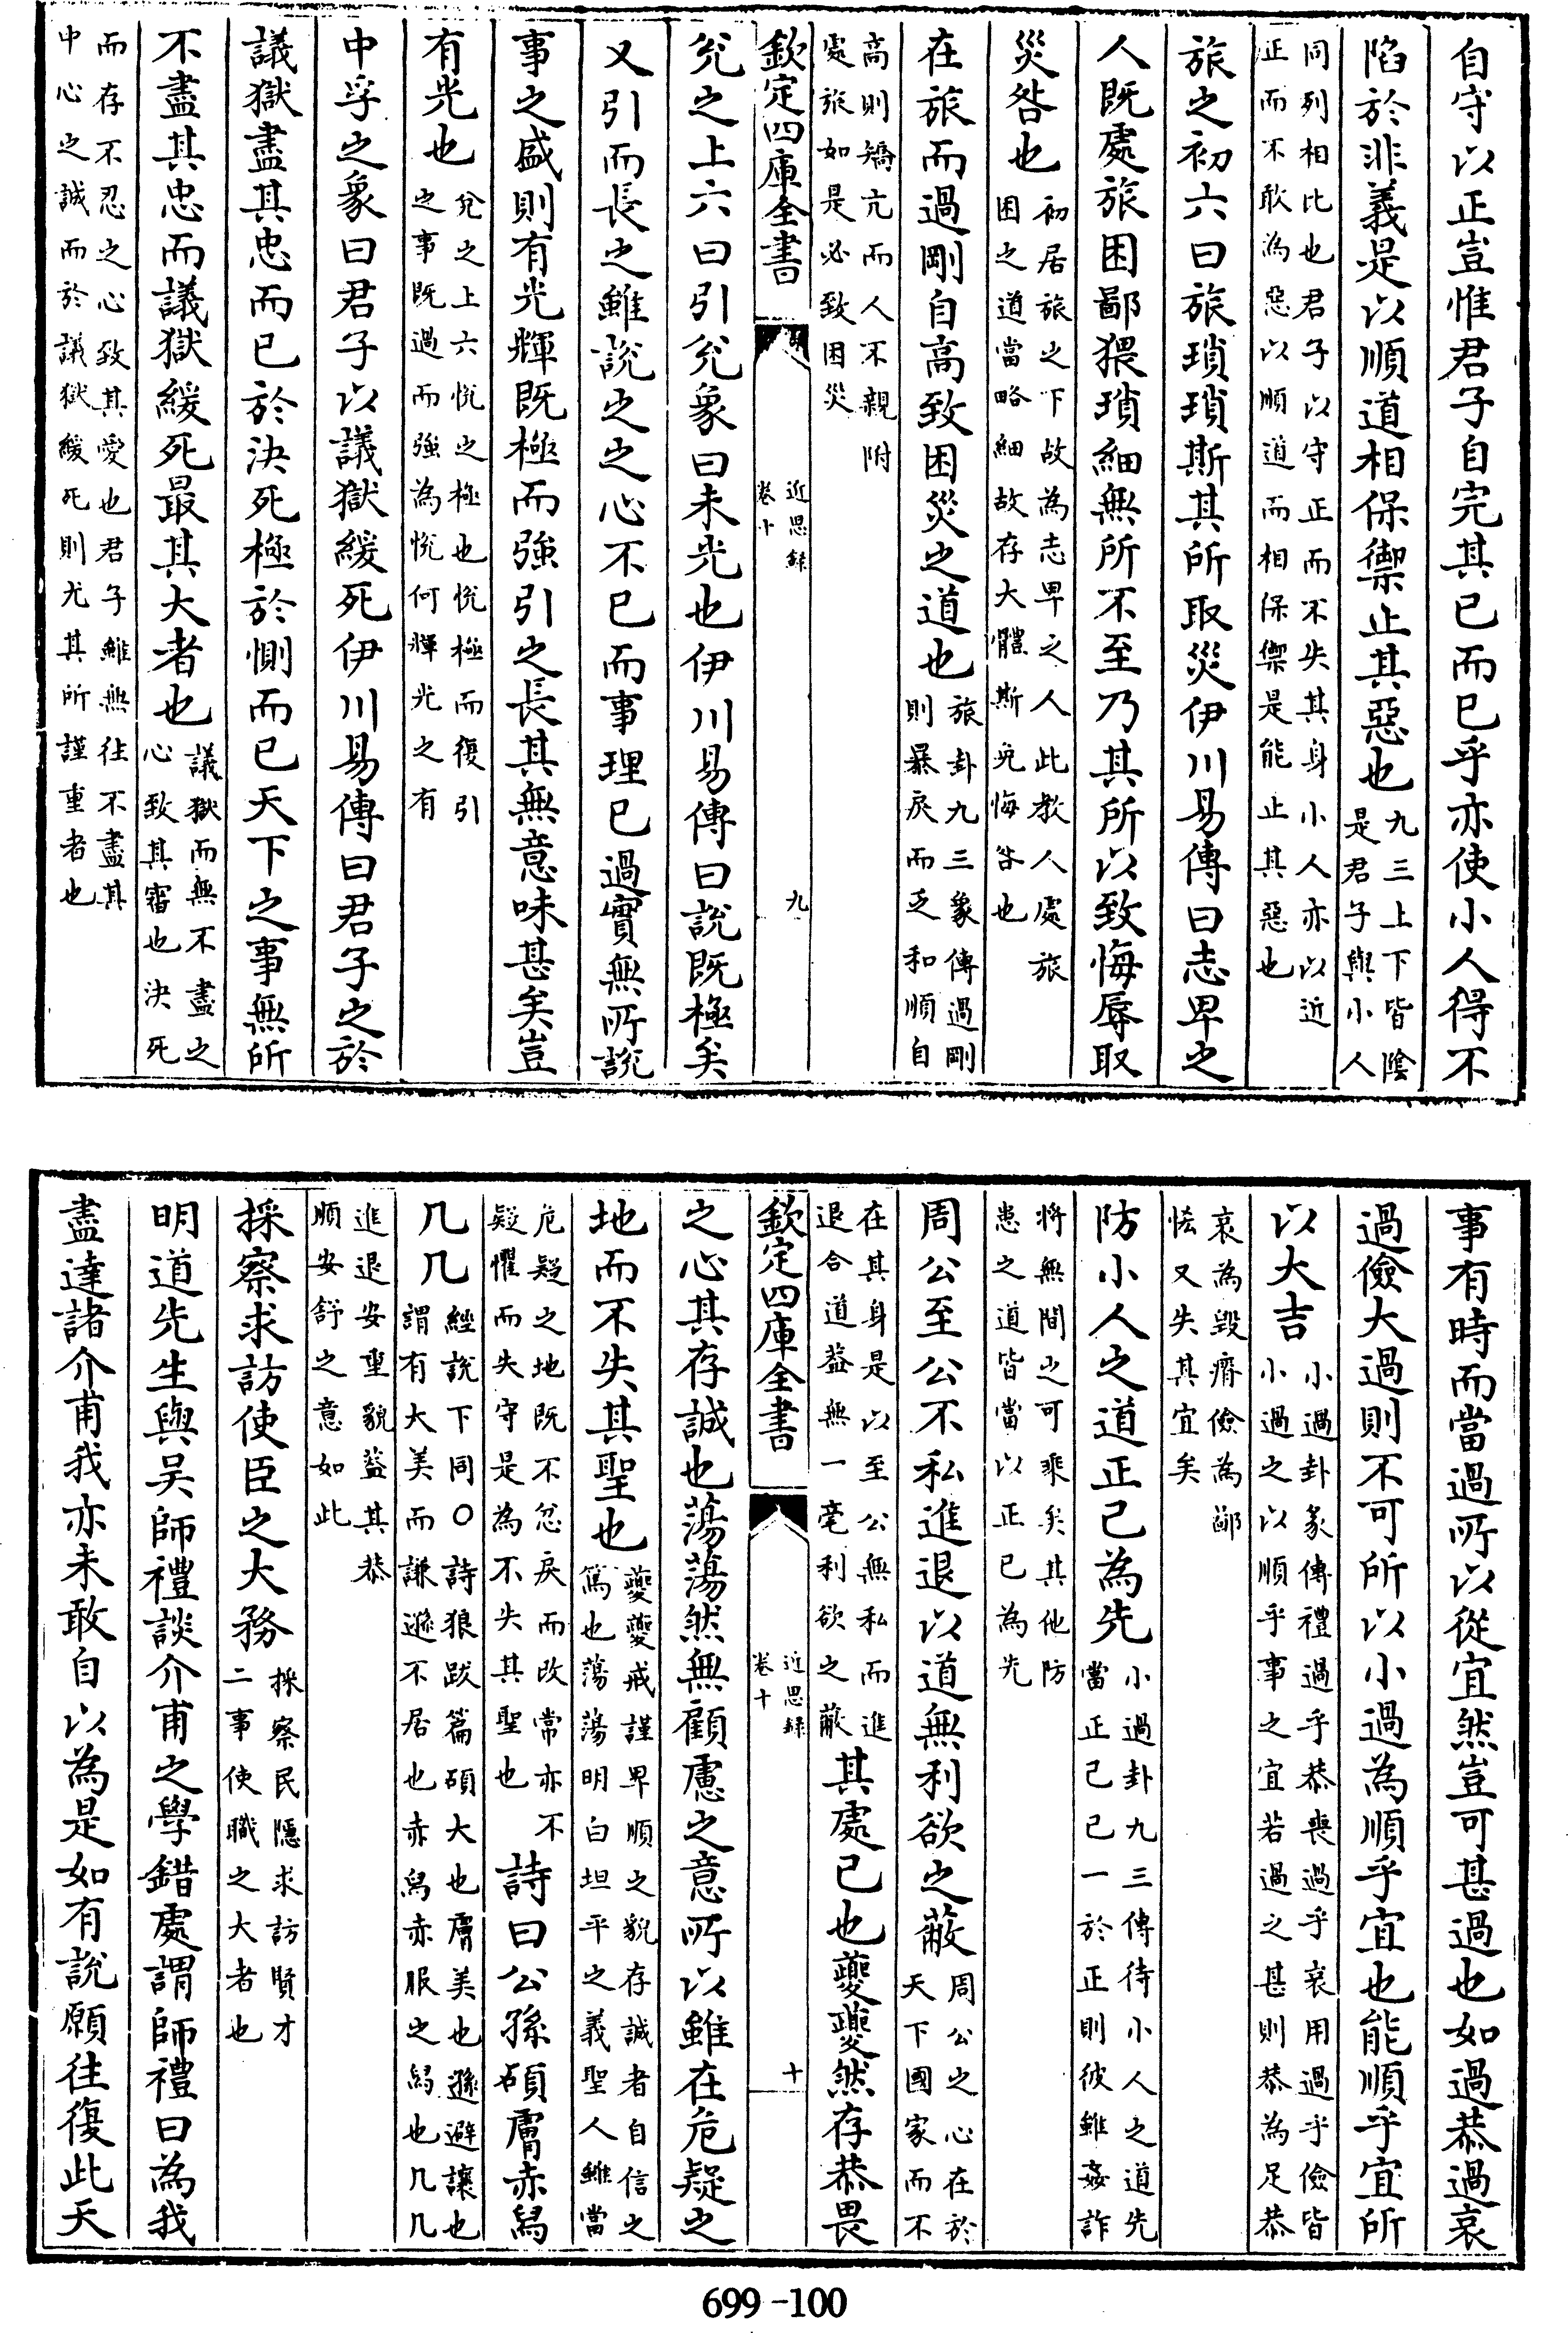 自守以正豈惟君子自完其己而已乎亦使小人得不
陷於非義是以順道相保禦止其惡也九三上下皆陰
是君子與小人
同列相比也君子以守正而不失其身小人亦以近
正而不敢為惡以順道而相保禦是能止其惡也
旅之初六曰旅瑣瑣斯其所取災伊川易傳曰志卑之
人既處旅困鄙猥瑣細無所不至乃其所以致悔辱取
災咎也初居旅之下故為志卑之人此教人處旅
困之道當略細故存大體斯免悔咎也
在旅而過剛自高致困災之道也旅卦九三象傳過剛
則暴戾而乏和順自
高則矯亢而人不親附
處旅如是必致困災
欽定四庫全書
近思録
卷十
九
兊之上六曰引兊象曰未光也伊川易傳曰說既極矣
又引而長之雖說之之心不已而事理已過實無所說
事之盛則有光輝既極而強引之長其無意味甚矣豈
有光也兊之上六悅之極也悅極而復引
之事既過而強為悅何輝光之有
中孚之象曰君子以議獄緩死伊川易傳曰君子之於
議獄盡其忠而已於決死極於惻而已天下之事無所
不盡其忠而議獄緩死最其大者也議獄而無不盡之
心致其審也決死
而存不忍之心致其愛也君子雖無往不盡其
中心之誠而於議獄緩死則尤其所謹重者也
事有時而當過所以從宜然豈可甚過也如過恭過哀
過儉大過則不可所以小過為順乎宜也能順乎宜所
以大吉小過卦彖傳禮過乎恭喪過乎哀用過乎儉皆
小過之以順乎事之宜若過之甚則恭為足恭
哀為毀瘠儉為鄙
恡又失其宜矣
防小人之道正己為先小過卦九三傳待小人之道先
當正己己一於正則彼雖姦詐
將無間之可乘矣其他防
患之道皆當以正己為先
周公至公不私進退以道無利欲之蔽周公之心在於
天下國家而不
在其身是以至公無私而進
退合道葢無一毫利欲之蔽其處己也夔夔然存恭畏
欽定四庫全書
近思録
卷十
十
之心其存誠也蕩蕩然無顧慮之意所以雖在危疑之
地而不失其聖也夔夔戒謹卑順之貌存誠者自信之
篤也蕩蕩明白坦平之義聖人雖當
危疑之地既不忿戾而改常亦不
疑懼而失守是為不失其聖也詩曰公孫碩膚赤舄
几几經說下同○詩狼跋篇碩大也膚美也遜避讓也
謂有大美而謙遜不居也赤舄赤服之舄也几几
進退安重貌葢其恭
順安舒之意如此
採察求訪使臣之大務採察民隱求訪賢才
二事使職之大者也
明道先生與吴師禮談介甫之學錯處謂師禮曰為我
盡達諸介甫我亦未敢自以為是如有說願往復此天
699-100